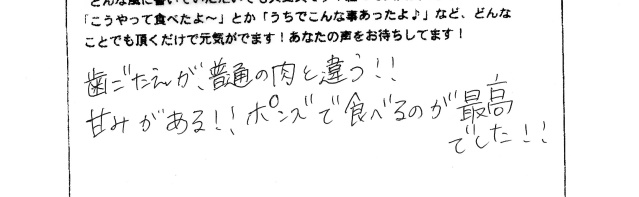 「こうやって食べたよ〜」とか「うちでこんな事あったよ♪」など、どんな
ことでも頂くだけで元気がでます！あなたの声をお待ちしてます！
歯ごたえが、普通の肉と違う!!
甘みがある!! ポンズで食べるのが最高
でした!!